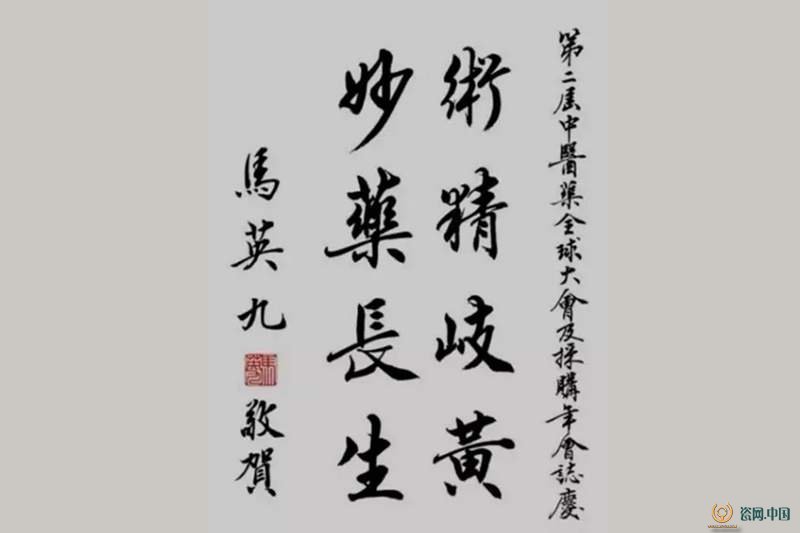 第二屆中醫藥全球大會及採購年會誌慶
術精岐黃
妙藥長生
馬英九
敬賀
瓷网.中国